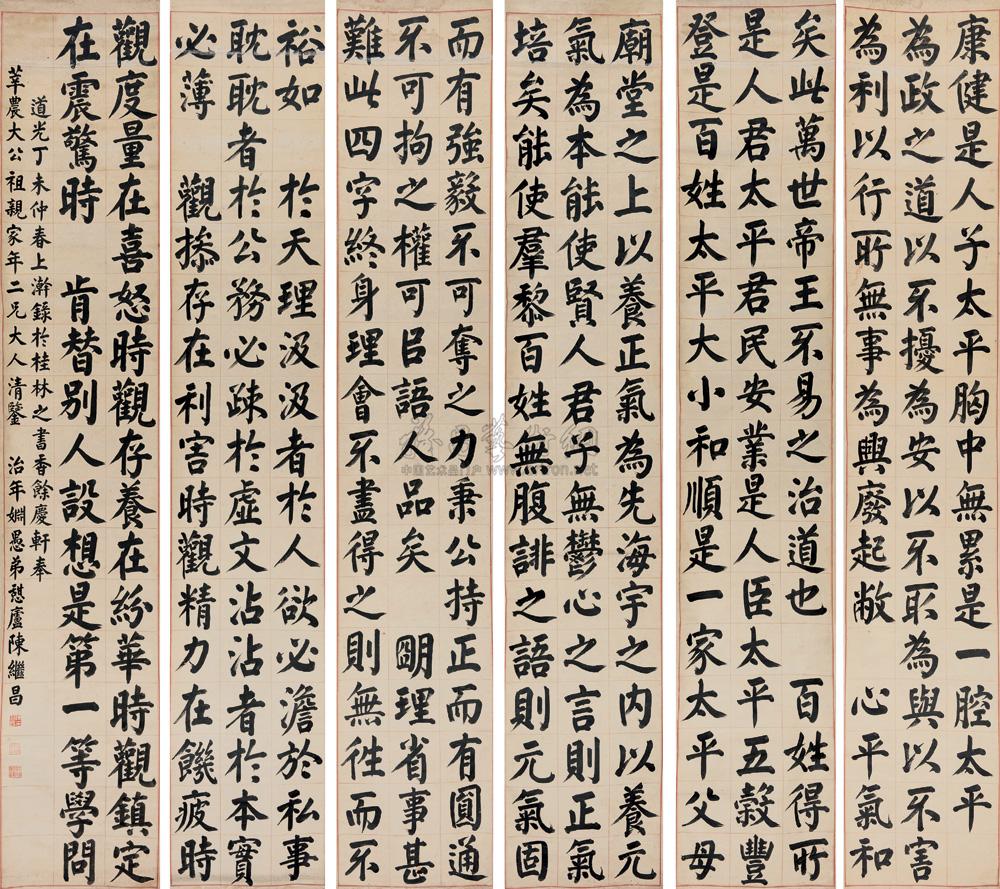 康健是人子太平胸中無累是一腔太平
為政之道以不擾為安以不取為與以不害
為利以行所無事為興廢起敝　心平氣和
矣此萬世帝王不易之治道也　百姓得所
是人君太平君民安業是人臣太平五穀豐
登是百姓太平大小和順是一家太平父母
廟堂之上以養正氣為先海宇之內以養元
氣為本能使賢人君子無鬱心之言則正氣
培矣能使羣黎百姓無腹誹之語則元氣固
而有強毅不可奪之力秉公持正而有圓通
不可拘之權可㠯語人品矣　朙理省事甚
難此四字終身理會不盡得之則無徃而不
裕如　於天理汲汲者於人欲必澹於私事
耽耽者於公務必疎於虛文沾沾者於本實
必薄　觀操存在利害時觀精力在饑疲時
觀度量在喜怒時觀存養在紛華時觀鎮定
在震驚時　肯替別人設想是第一等學問
道光丁未仲春上澣錄於桂林之書香餘慶軒奉
莘農大公祖親家年二兄大人清鑒　治年姻愚弟諶廬陳繼昌